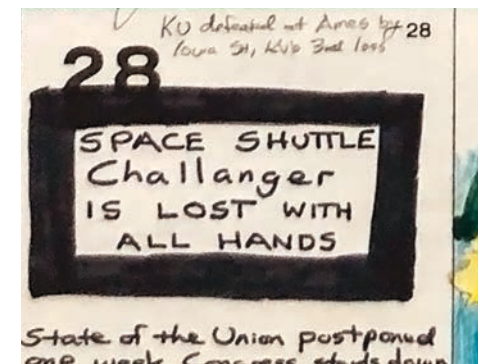 KU defeated at Ames by 28
Iowa St, KU's 3rd loss
28
SPACE SHUTTLE
Challanger
IS LOST WITH
ALL HANDS
State of the Union postponed
one week, Congress shuts down